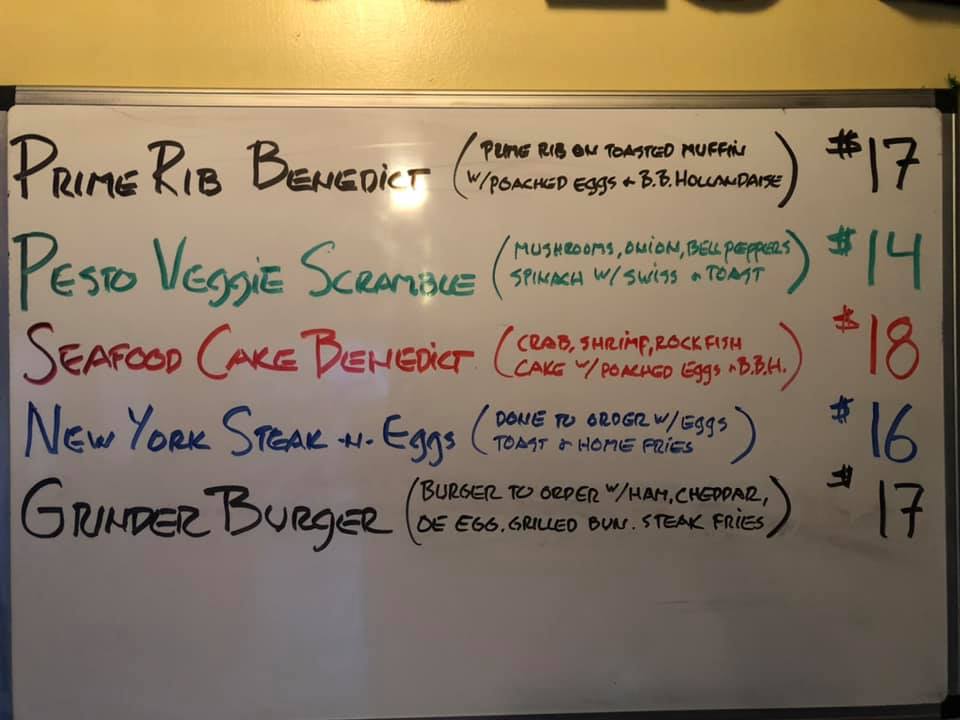 PRIME RIB BENEDICT (PRIME RIB ON TOASTED MUFFIN $17
W/POACHED EGGS & B.B. HOLLANDAISE)
PESTO VEGGIE SCRAMBLE (MUSHROOMS, ONION, BELL PEPPERS $14
SPINACH W/ SWISS & TOAST)
SEAFOOD CAKE BENEDICT (CRAB, SHRIMP, ROCKFISH $18
CAKE W/POACHED EGGS & B.B.H.)
NEW YORK STEAK -N- EGGS (DONE TO ORDER W/EGGS $16
TOAST & HOME FRIES)
GRINDER BURGER (BURGER TO ORDER W/HAM, CHEDDAR, $17
OE EGG. GRILLED BUN. STEAK FRIES)